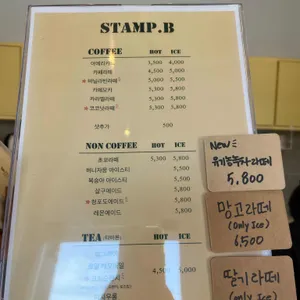 STAMP.B
COFFEE HOT ICE
아메리카노 3,500 4,000
카페라떼 4,500 5,000
★바닐라빈라떼 5,000 5,300
카페모카 5,300 5,800
카라멜라떼 5,300 5,800
★코코넛라떼 5,800
샷추가 500
NON COFFEE HOT ICE
초코라떼 5,300 5,800
허니자몽 아이스티 5,500
복숭아 아이스티 5,500
살구에이드 5,800
★청포도에이드 5,800
레몬에이드 5,800
TEA HOT ICE
4,500 5,000
New
유기농녹차라떼
5,800
망고라떼
(only Ice)
6,500
딸기라떼
(only Ice)